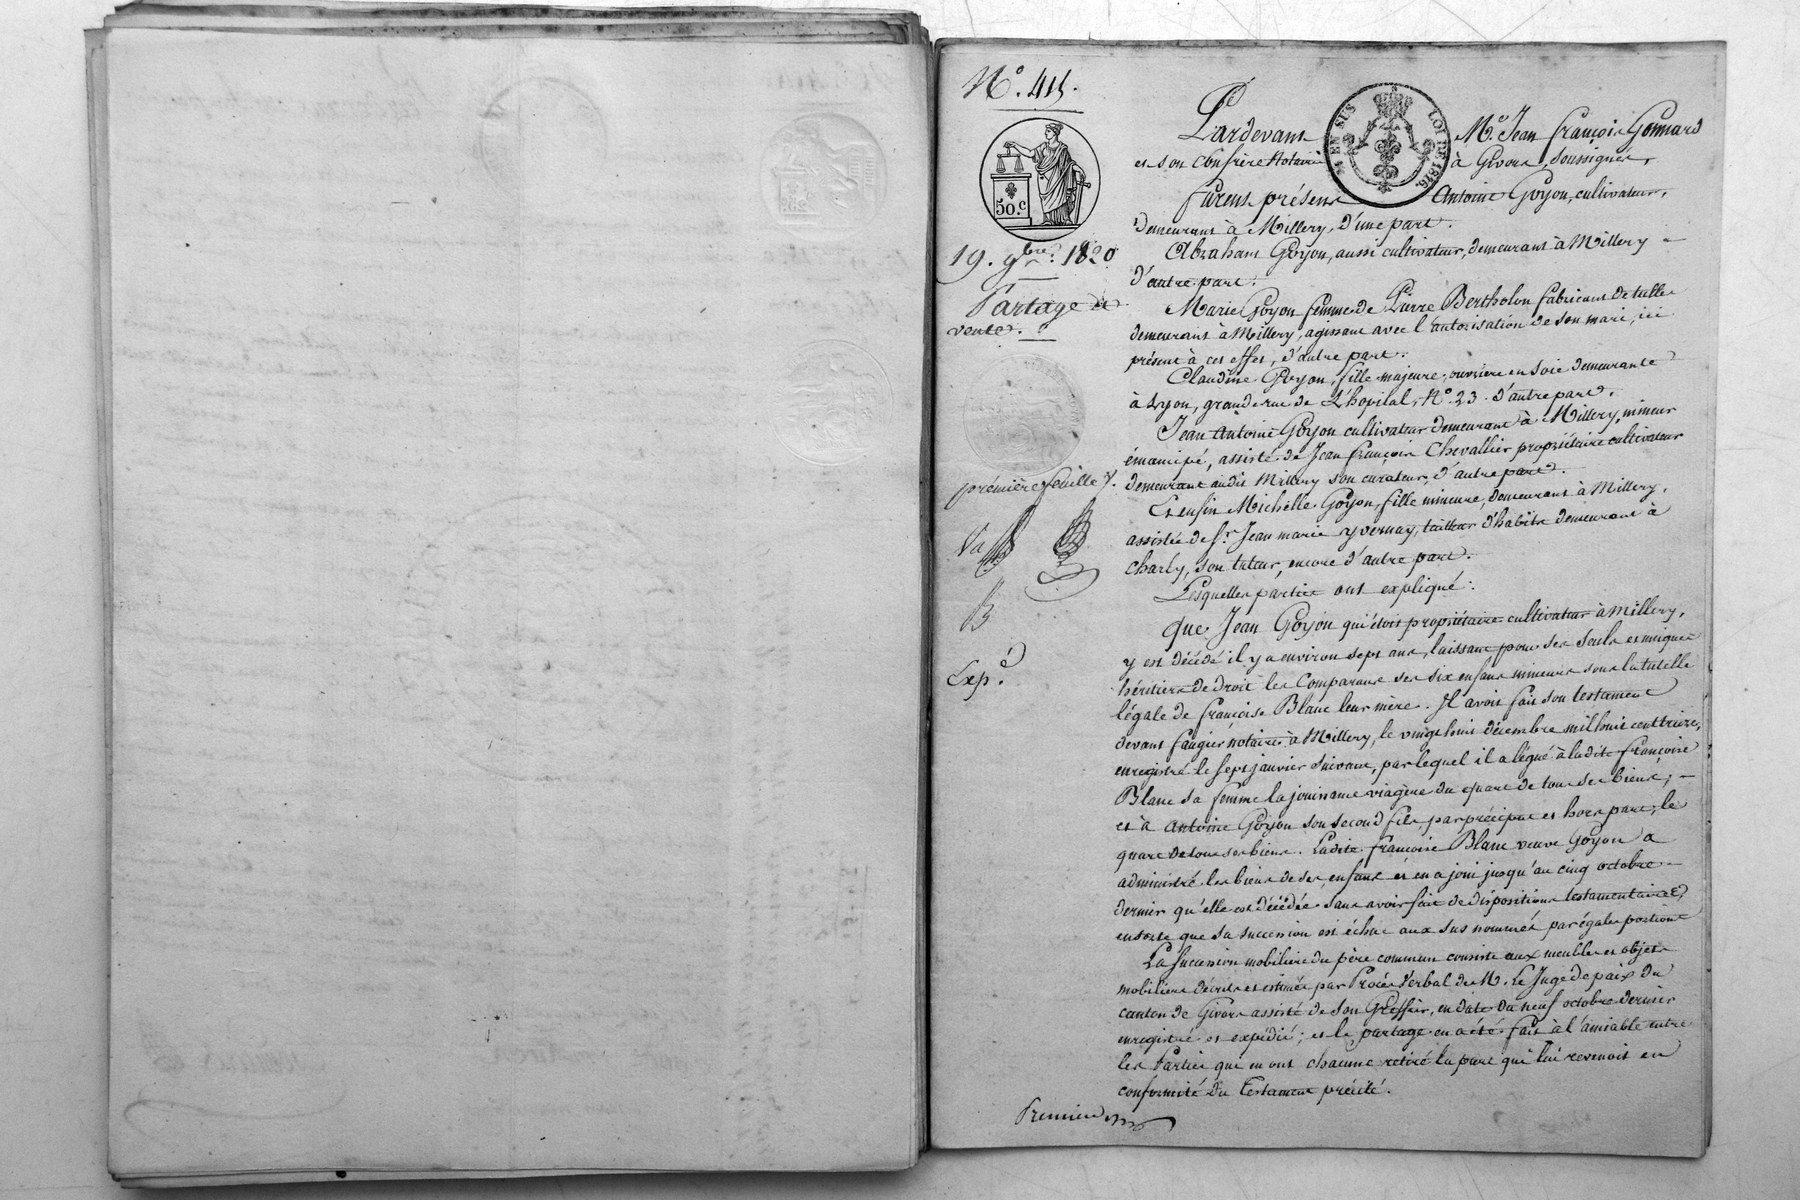 N.º 415.
50.c
19. 9bre. 1820
Partage et
vente.
première feuille
Exp.é
EN SUS
LOI DE 1816.
Pardevant Me. Jean françois Gonnard
et son Confrère Notaires à Givors, soussignés,
furent présens Antoine Goyon, cultivateur,
demeurant à Millery, d'une part.
Abraham Goyon, aussi cultivateur, demeurant à Millery –
d'autre part.
Marie Goyon femme de Pierre Bertholon fabricant de tulle
demeurant à Millery, agissant avec l'autorisation de son mari, ici
présent à cet effet, d'autre part.
Claudine Goyon, fille majeure, ouvrière en soie demeurante
à Lyon, grande rue de L'hopital, No 23. d'autre part.
Jean Antoine Goyon cultivateur demeurant à Millery, mineur
émancipé, assisté de Jean françois Chevallier propriétaire cultivateur
demeurant audit Millery son curateur, d'autre part.
Et enfin Michelle Goyon, fille mineure, demeurant à Millery,
assistée de Sr. Jean marie yvernay, tailleur d'habits demeurant à
charly, son tuteur, encore d'autre part.
Lesquelles parties ont expliqué:
que Jean Goyon qui étoit propriétaire cultivateur à Millery,
y est décédé il y a environ sept ans, laissant pour ses seuls et uniques
héritiers de droit les Comparans ses six enfans mineurs sous la tutelle
légale de françoise Blanc leur mère. Il avoit fait son testament
devant faugier notaire à Millery, le vingt huit décembre mil huit cent treize,
enregistré le sept janvier suivant, par lequel il a légué à ladite françoise
Blanc sa femme la jouissance viagère du quart de tous ses biens; –
et à Antoine Goyon son second fils, par préciput et hors part, le
quart de tous ses biens. Ladite françoise Blanc veuve Goyon a
administré les biens de ses enfans et en a joui jusqu'au cinq octobre –
dernier qu'elle est décédée sans avoir fait de dispositions testamentaires,
ensorte que sa succession est échue aux sus nommés par égales portions
La succession mobiliere du père commun consiste aux meubles et objets
mobiliers décrits et estimés par Procès Verbal de M. Le Juge de paix du
canton de Givors assisté de son Greffier, en date du neuf octobre dernier
enregistré et expédié; et le partage en a été fait à l'amiable entre
les Parties qui en ont chacune retiré la part qui lui revenoit en
conformité du Testament précité.
Premiere